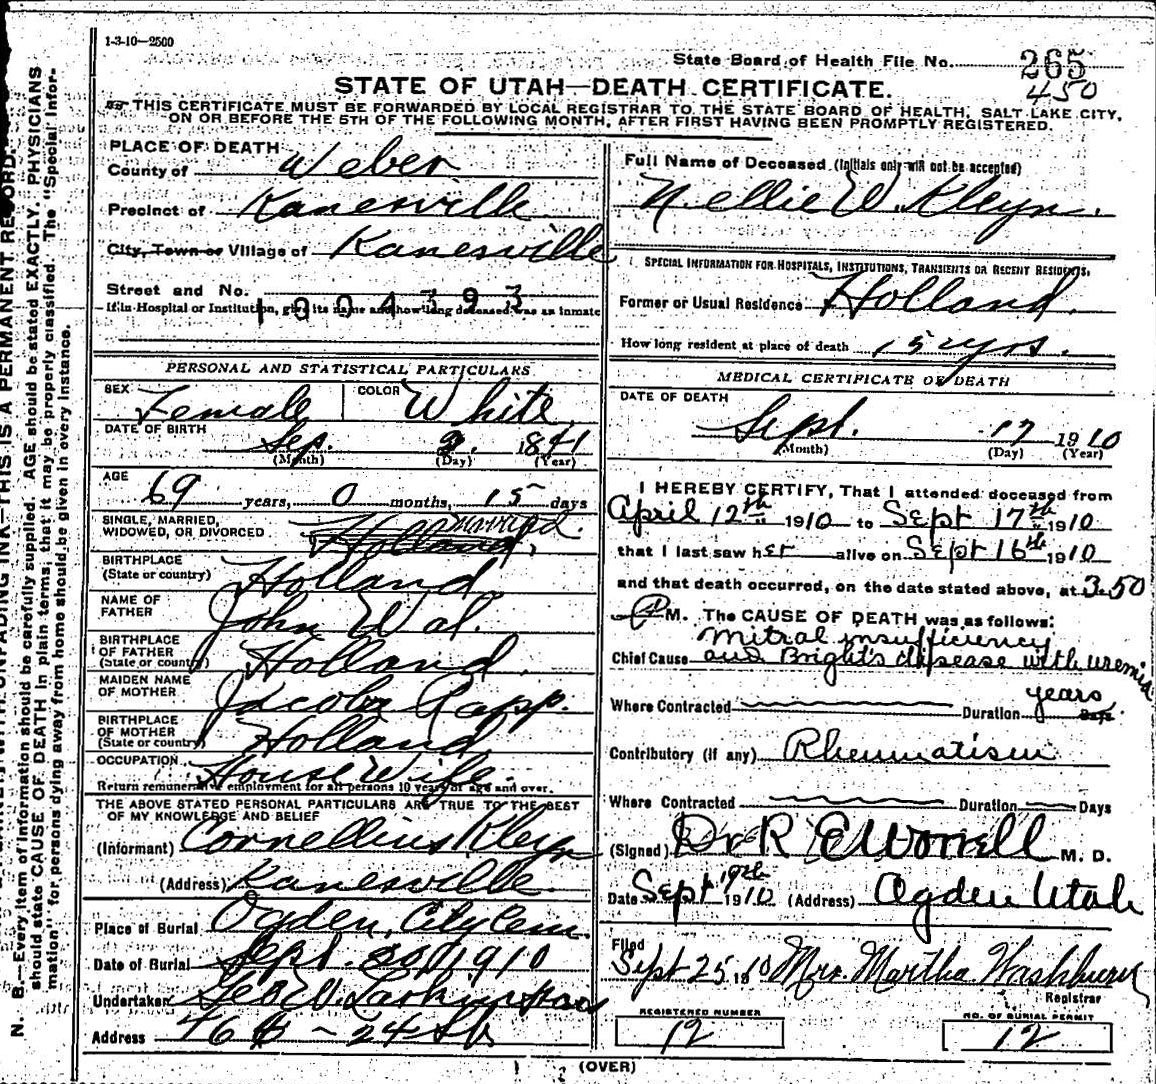 1-3-10—2500
State Board of Health File No. 265
450
STATE OF UTAH—DEATH CERTIFICATE.
THIS CERTIFICATE MUST BE FORWARDED BY LOCAL REGISTRAR TO THE STATE BOARD OF HEALTH, SALT LAKE CITY,
ON OR BEFORE THE 5TH OF THE FOLLOWING MONTH, AFTER FIRST HAVING BEEN PROMPTLY REGISTERED.
PLACE OF DEATH
County of Weber
Precinct of Kanesville
City, Town or Village of Kanesville
Street and No.
1004393
If in Hospital or Institution, give its name and how long deceased was an inmate
PERSONAL AND STATISTICAL PARTICULARS
SEX Female COLOR White
DATE OF BIRTH Sep. 2. 1841
(Month) (Day) (Year)
AGE 69 years, 0 months, 15 days
SINGLE, MARRIED,
WIDOWED, OR DIVORCED Holland, married.
BIRTHPLACE
(State or country) Holland.
NAME OF
FATHER John Wal.
BIRTHPLACE
OF FATHER
(State or country) Holland.
MAIDEN NAME
OF MOTHER Jacoba Rapp.
BIRTHPLACE
OF MOTHER
(State or country) Holland
OCCUPATION House Wife.
Return remunerative employment for all persons 10 years of age and over.
THE ABOVE STATED PERSONAL PARTICULARS ARE TRUE TO THE BEST
OF MY KNOWLEDGE AND BELIEF
(Informant) Cornellius Kleyn
(Address) Kanesville.
Place of Burial Ogden, City Cem.
Date of Burial Sept. 1910
Undertaker Geo W. Larkin
Address 24 St
Full Name of Deceased (Initials only will not be accepted)
Nellie W. Kleyn.
SPECIAL INFORMATION FOR HOSPITALS, INSTITUTIONS, TRANSIENTS OR RECENT RESIDENTS.
Former or Usual Residence Holland.
How long resident at place of death 15 yrs.
MEDICAL CERTIFICATE OF DEATH
DATE OF DEATH
Sept. 17 1910
(Month) (Day) (Year)
I HEREBY CERTIFY, That I attended deceased from
April 12th 1910 to Sept 17th 1910
that I last saw her alive on Sept 16th 1910
and that death occurred, on the date stated above, at 3.50
P M. The CAUSE OF DEATH was as follows:
Mitral insufficiency
Chief Cause and Bright's disease with uremia
Where Contracted Duration years Days.
Contributory (if any) Rheumatism
Where Contracted Duration Days
(Signed) Dr R E Worrell M. D.
Date Sept 19th 1910 (Address) Ogden Utah
Filed
Sept 25 1910 Mrs. Martha Washburn
Registrar
REGISTERED NUMBER
12
NO. OF BURIAL PERMIT
12
(OVER)
THIS IS A PERMANENT RECORD.
N. B.—Every item of information should be carefully supplied. AGE should be stated EXACTLY. PHYSICIANS
should state CAUSE OF DEATH in plain terms, that it may be properly classified. The "Special Infor-
mation" for persons dying away from home should be given in every instance.